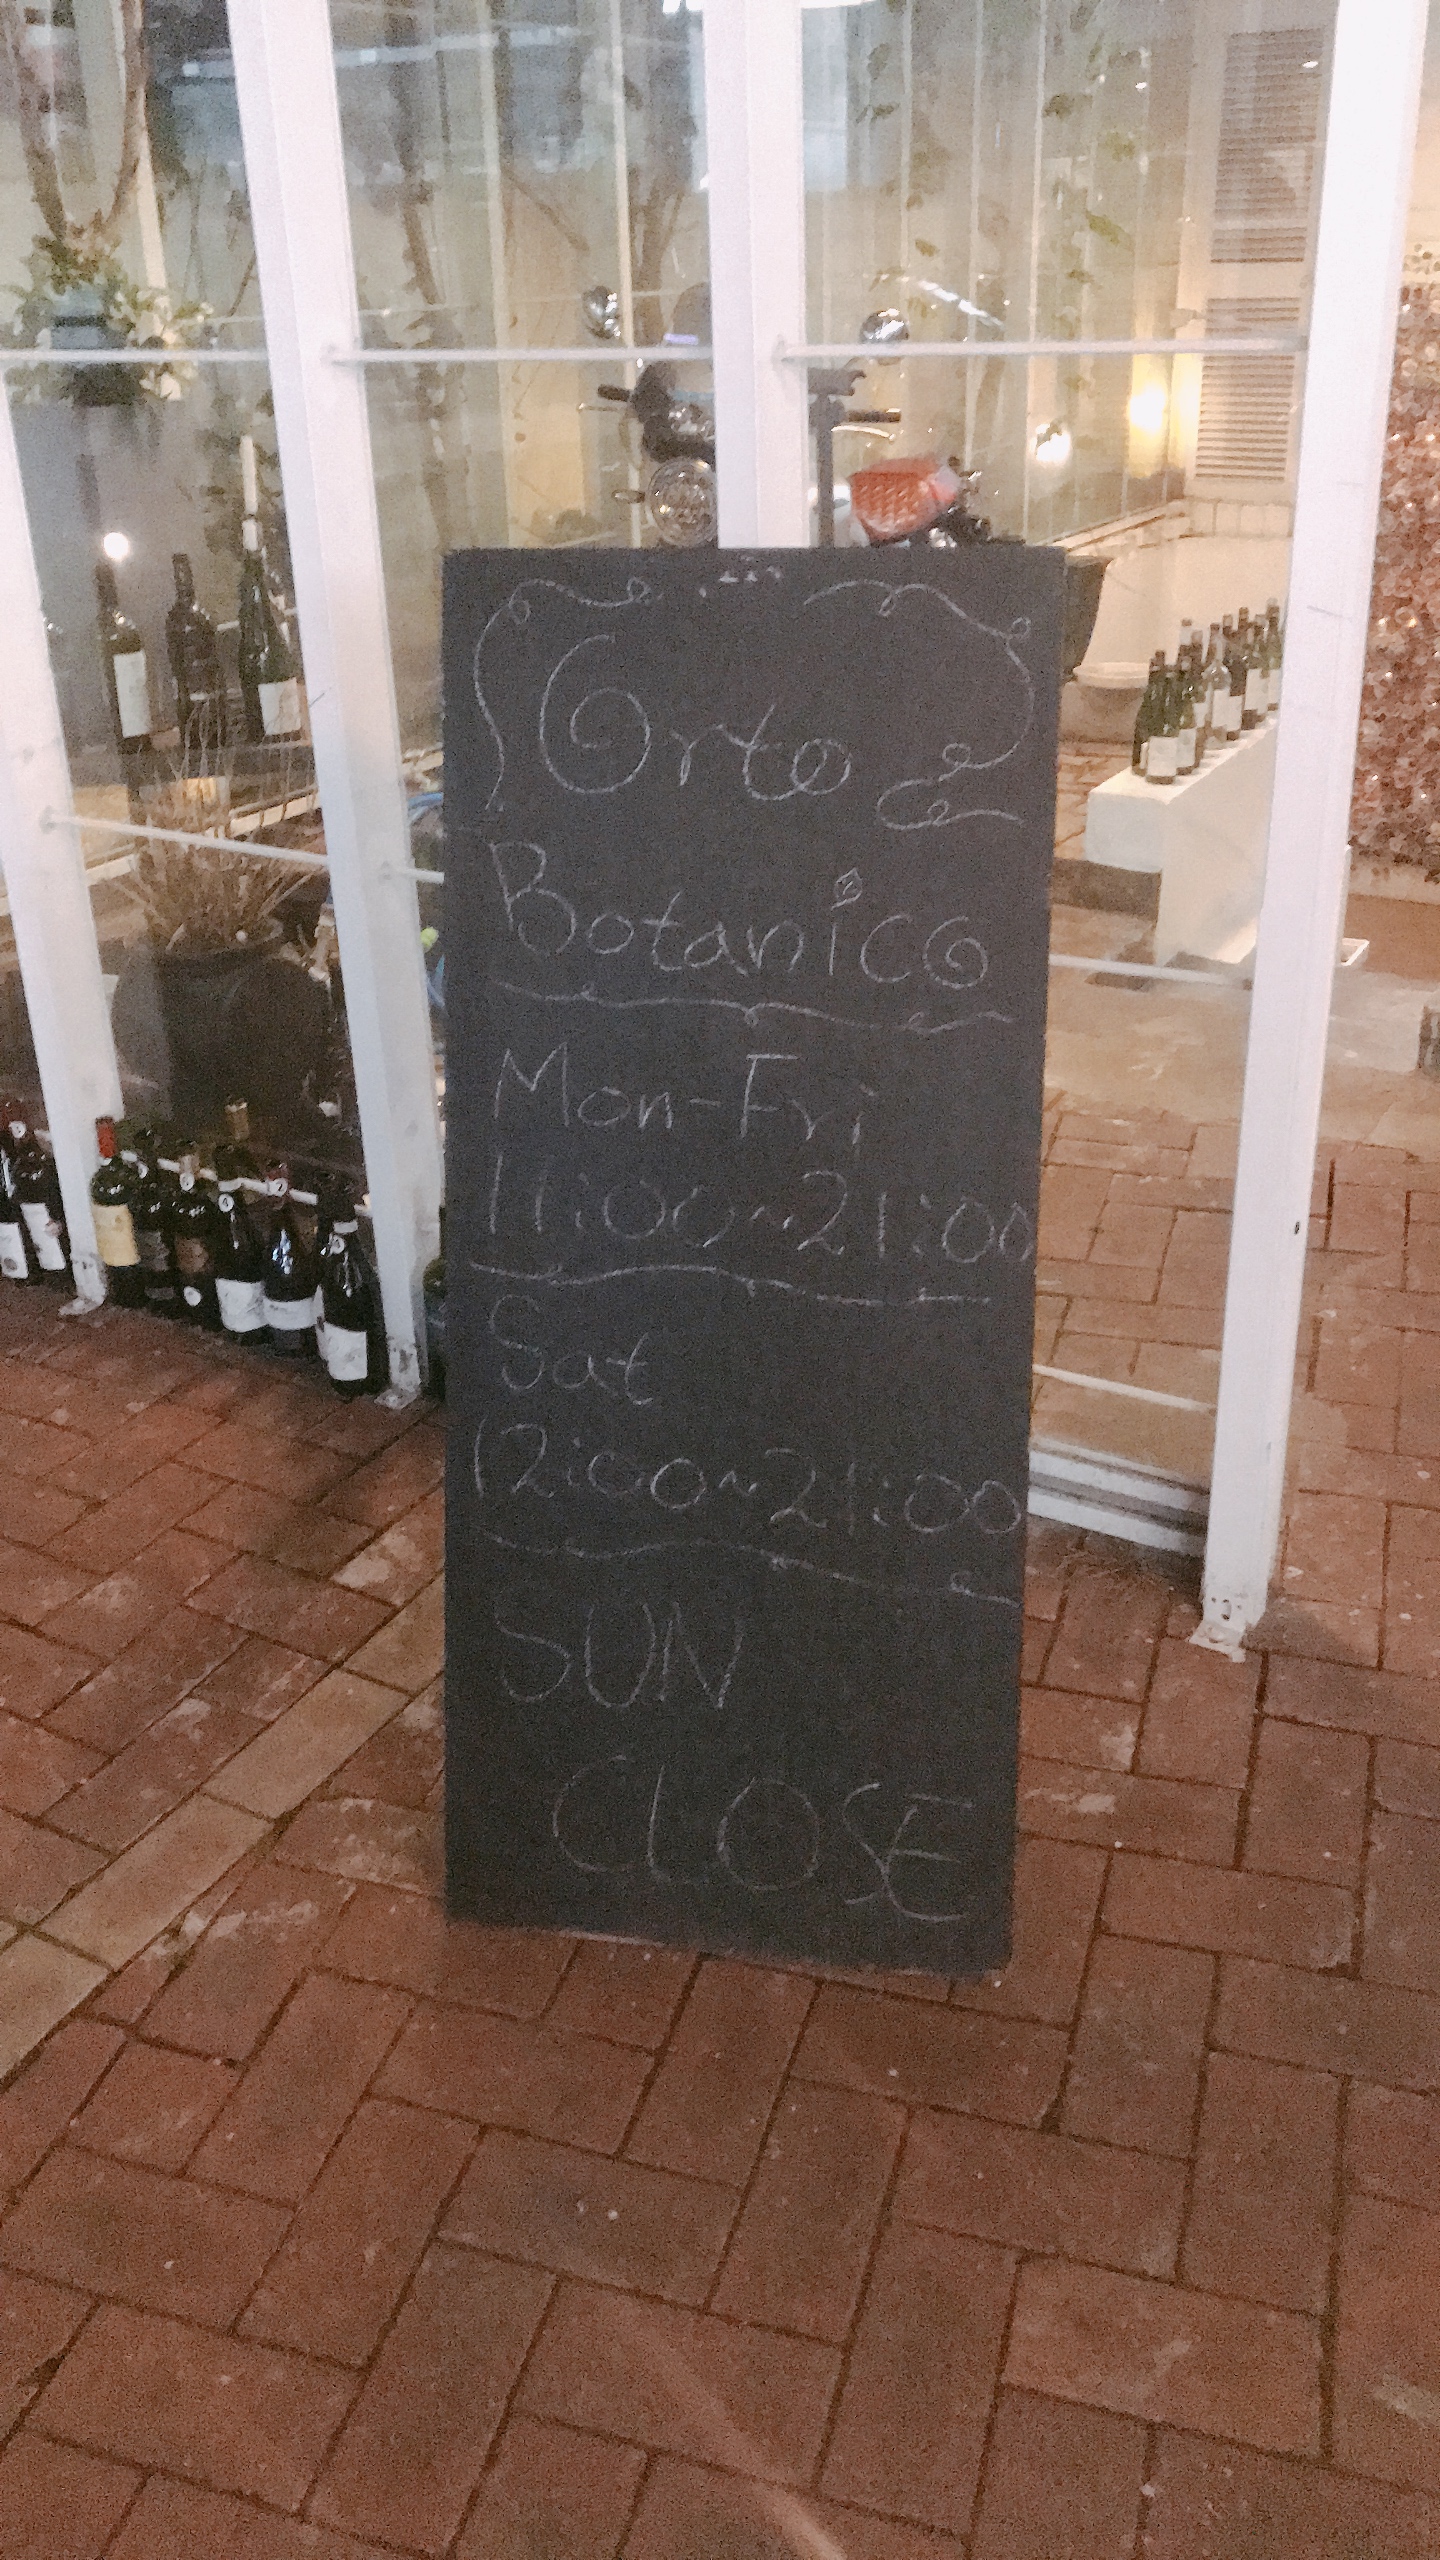 Orto
Botanico
Mon-Fri
11:00~21:00
Sat
12:00~21:00
SUN
CLOSE